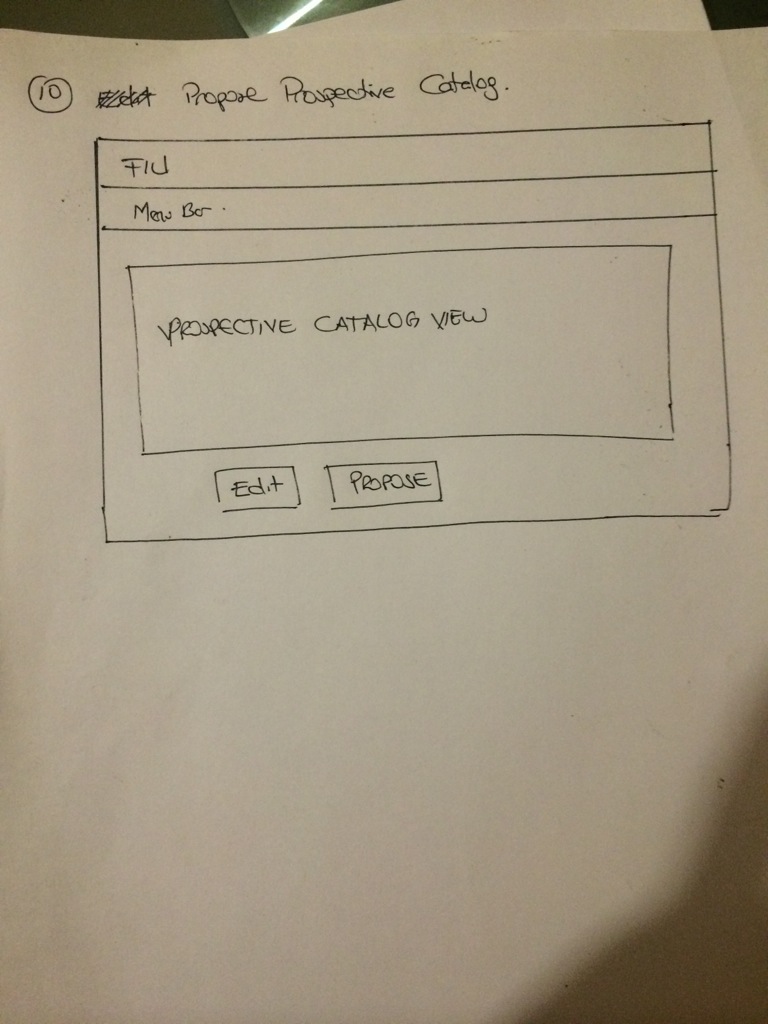 10 Propose Prospective Catalog.
FIU
Menu Bar.
PROSPECTIVE CATALOG VIEW
Edit PROPOSE